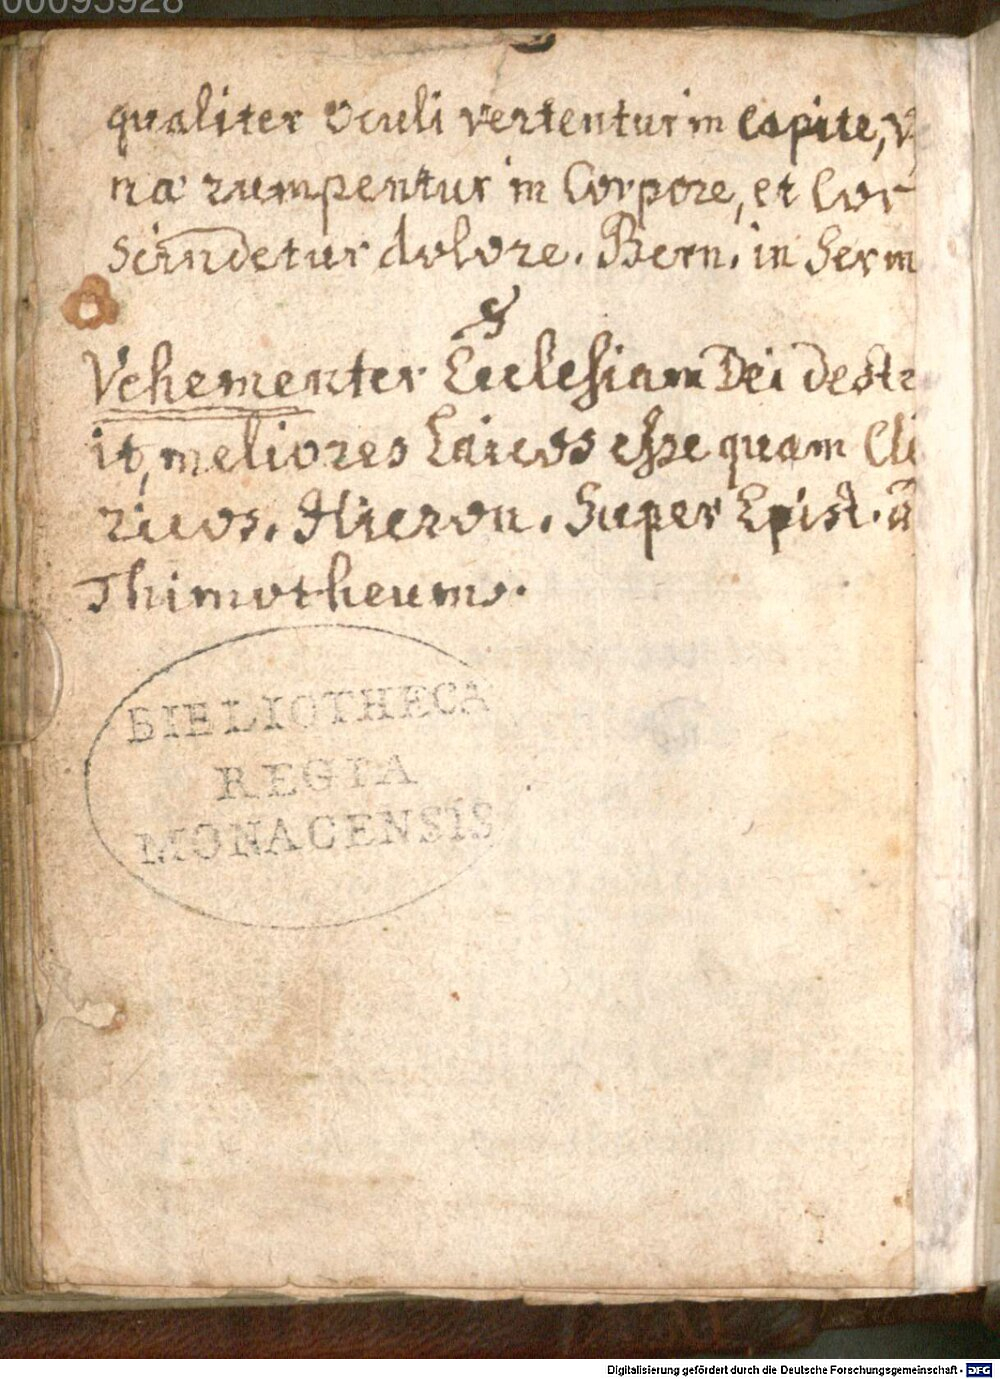 00095928
qualiter oculi vertentur in Capite, v
næ rumpentur in Corpore, et Cor
scindetur dolore. Bern. in Serm
Vehementer Ecclesiam Dei destr
it, meliores Laicos esse quam Cle
ricos. Hieron. Super Epist. a
Thimotheum.
BIBLIOTHECA
REGIA
MONACENSIS
Digitalisierung gefördert durch die Deutsche Forschungsgemeinschaft - DFG